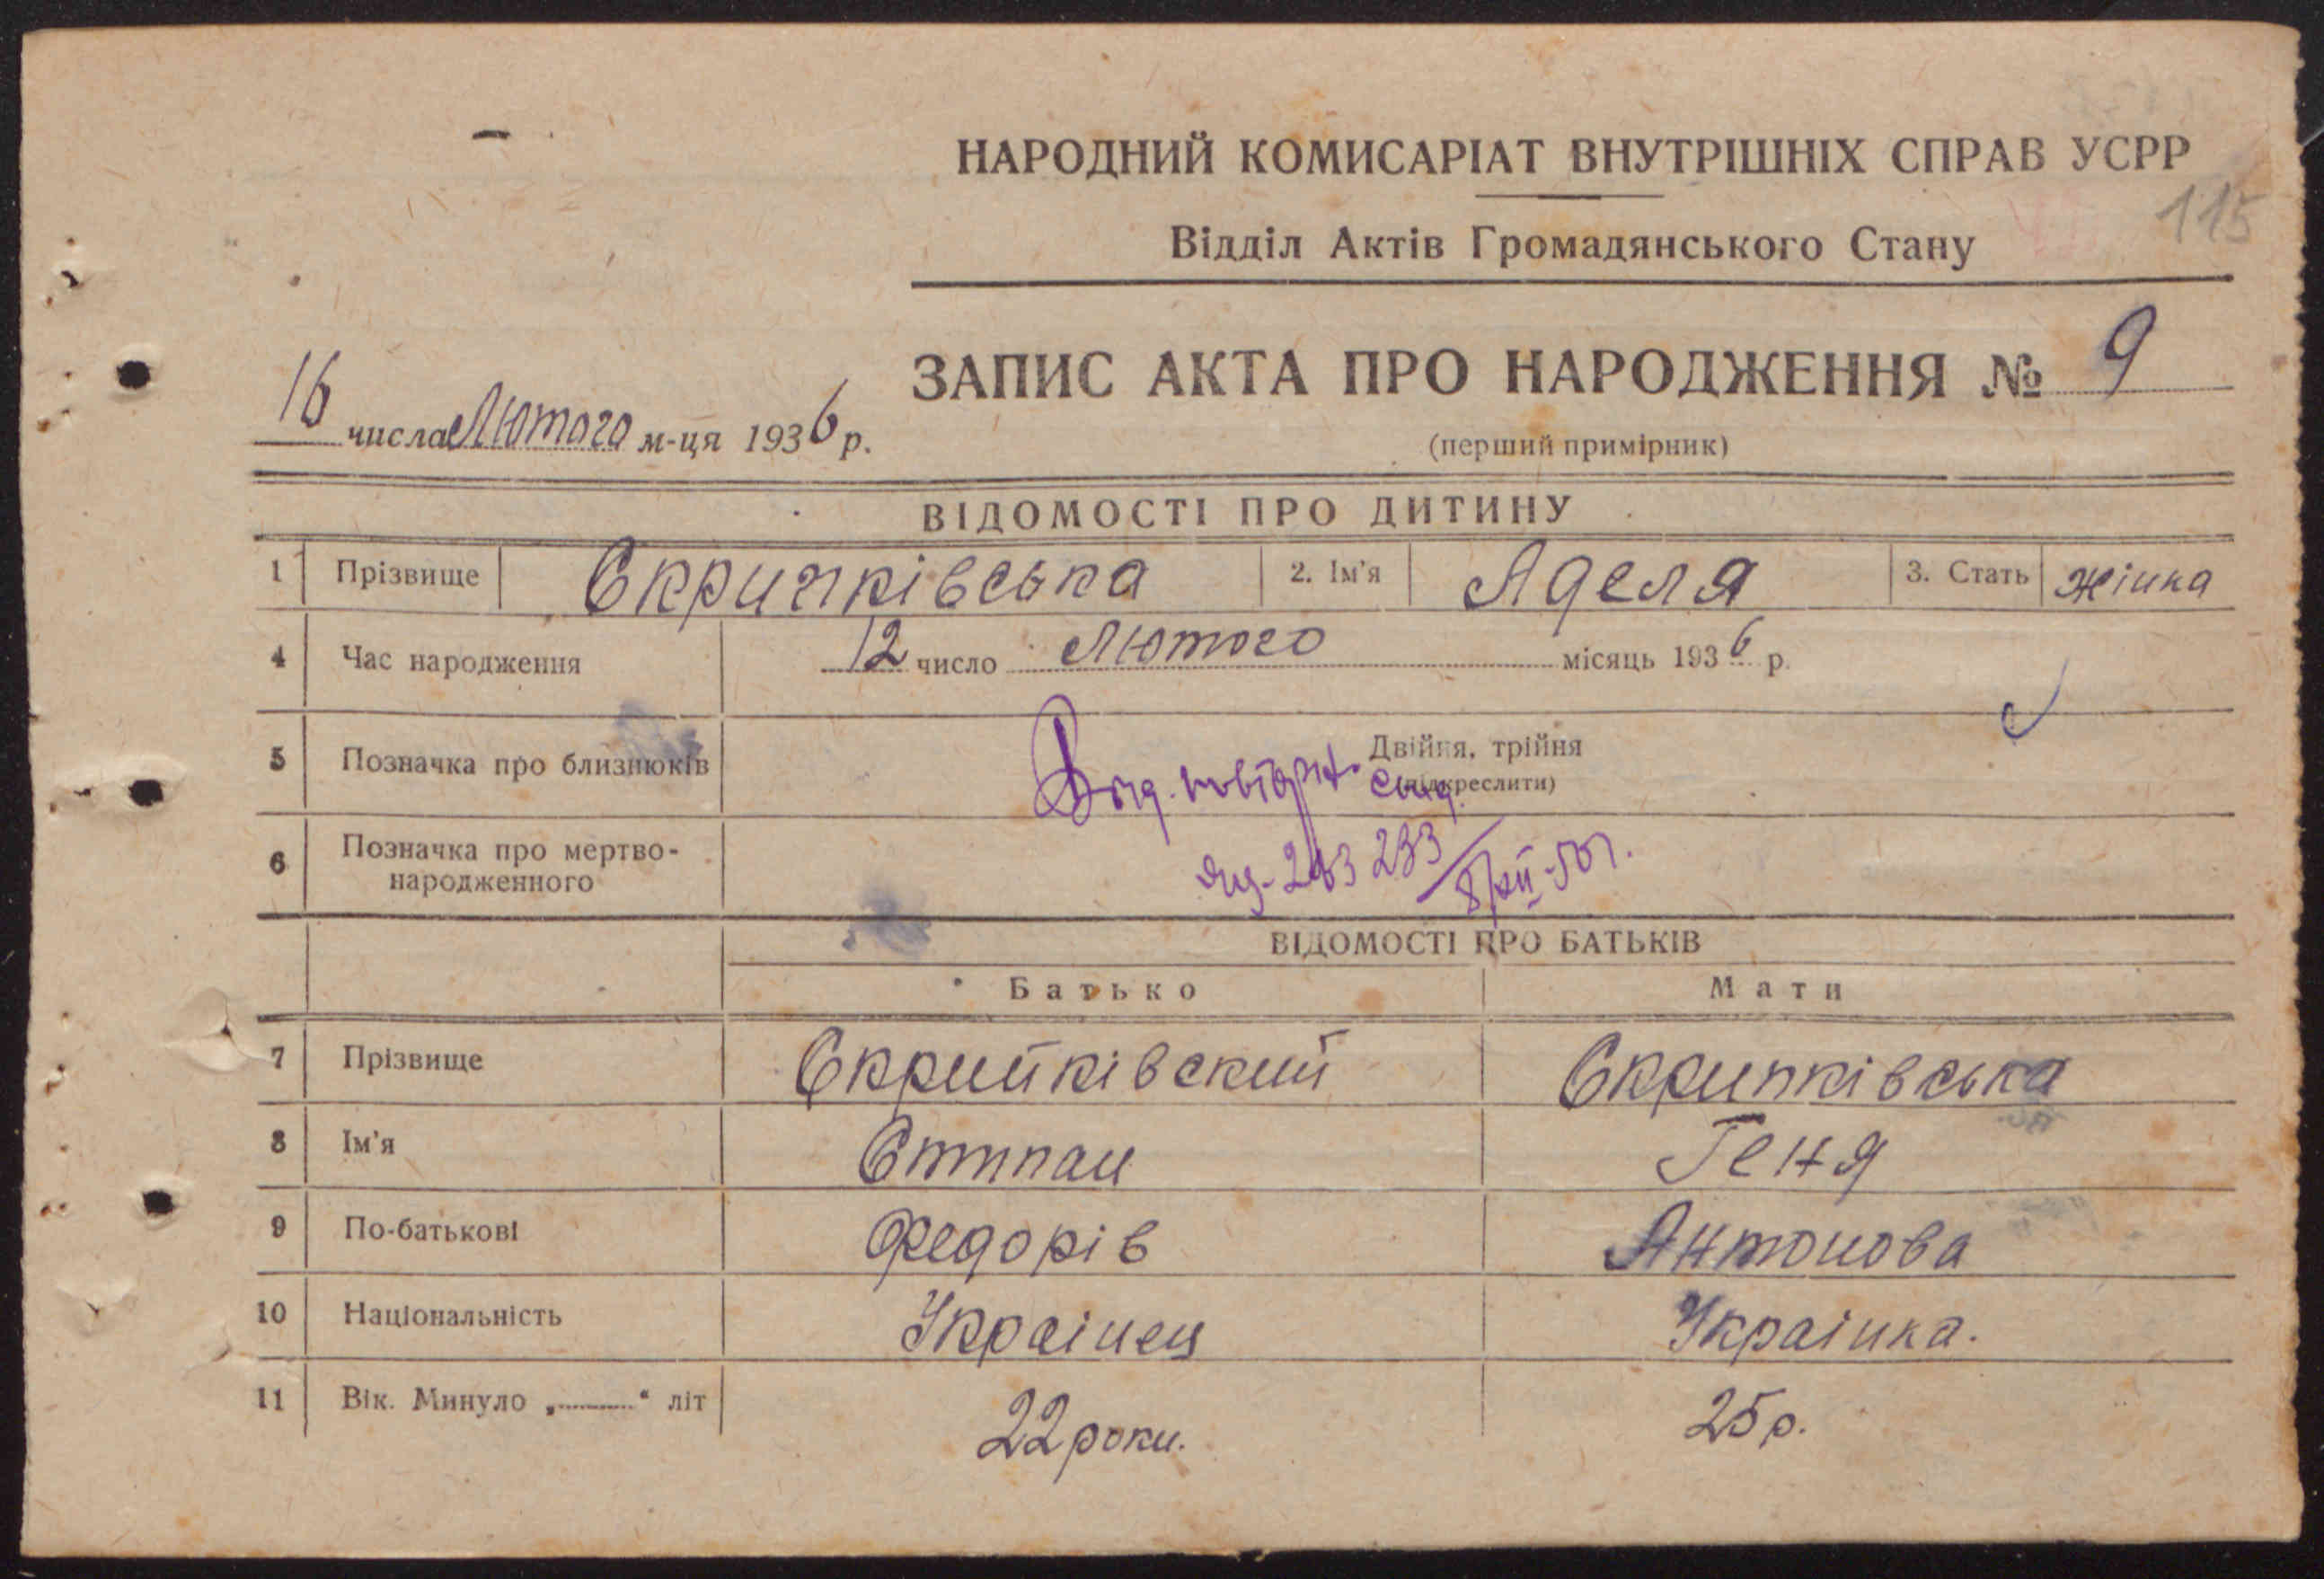 НАРОДНИЙ КОМИСАРІАТ ВНУТРІШНІХ СПРАВ УСРР
115
Відділ Актів Громадянського Стану
ЗАПИС АКТА ПРО НАРОДЖЕННЯ № 9
16 числа Лютого м-ця 1936 р.
(перший примірник)
ВІДОМОСТІ ПРО ДИТИНУ
1 Прізвище Скрипківська 2. Ім'я Аделя 3. Стать жінка
4 Час народження 12 число Лютого місяць 1936 р.
5 Позначка про близнюків Двійня, трійня
(підкреслити)
6 Позначка про мертво-
народженного
233
8/XII-50г.
ВІДОМОСТІ ПРО БАТЬКІВ
Батько Мати
7 Прізвище Скрипківский Скрипківська
8 Ім'я Стипан Геня
9 По-батькові Федорів Антонова
10 Національність Українец Українка.
11 Вік. Минуло „ “ літ 22 роки. 25 р.